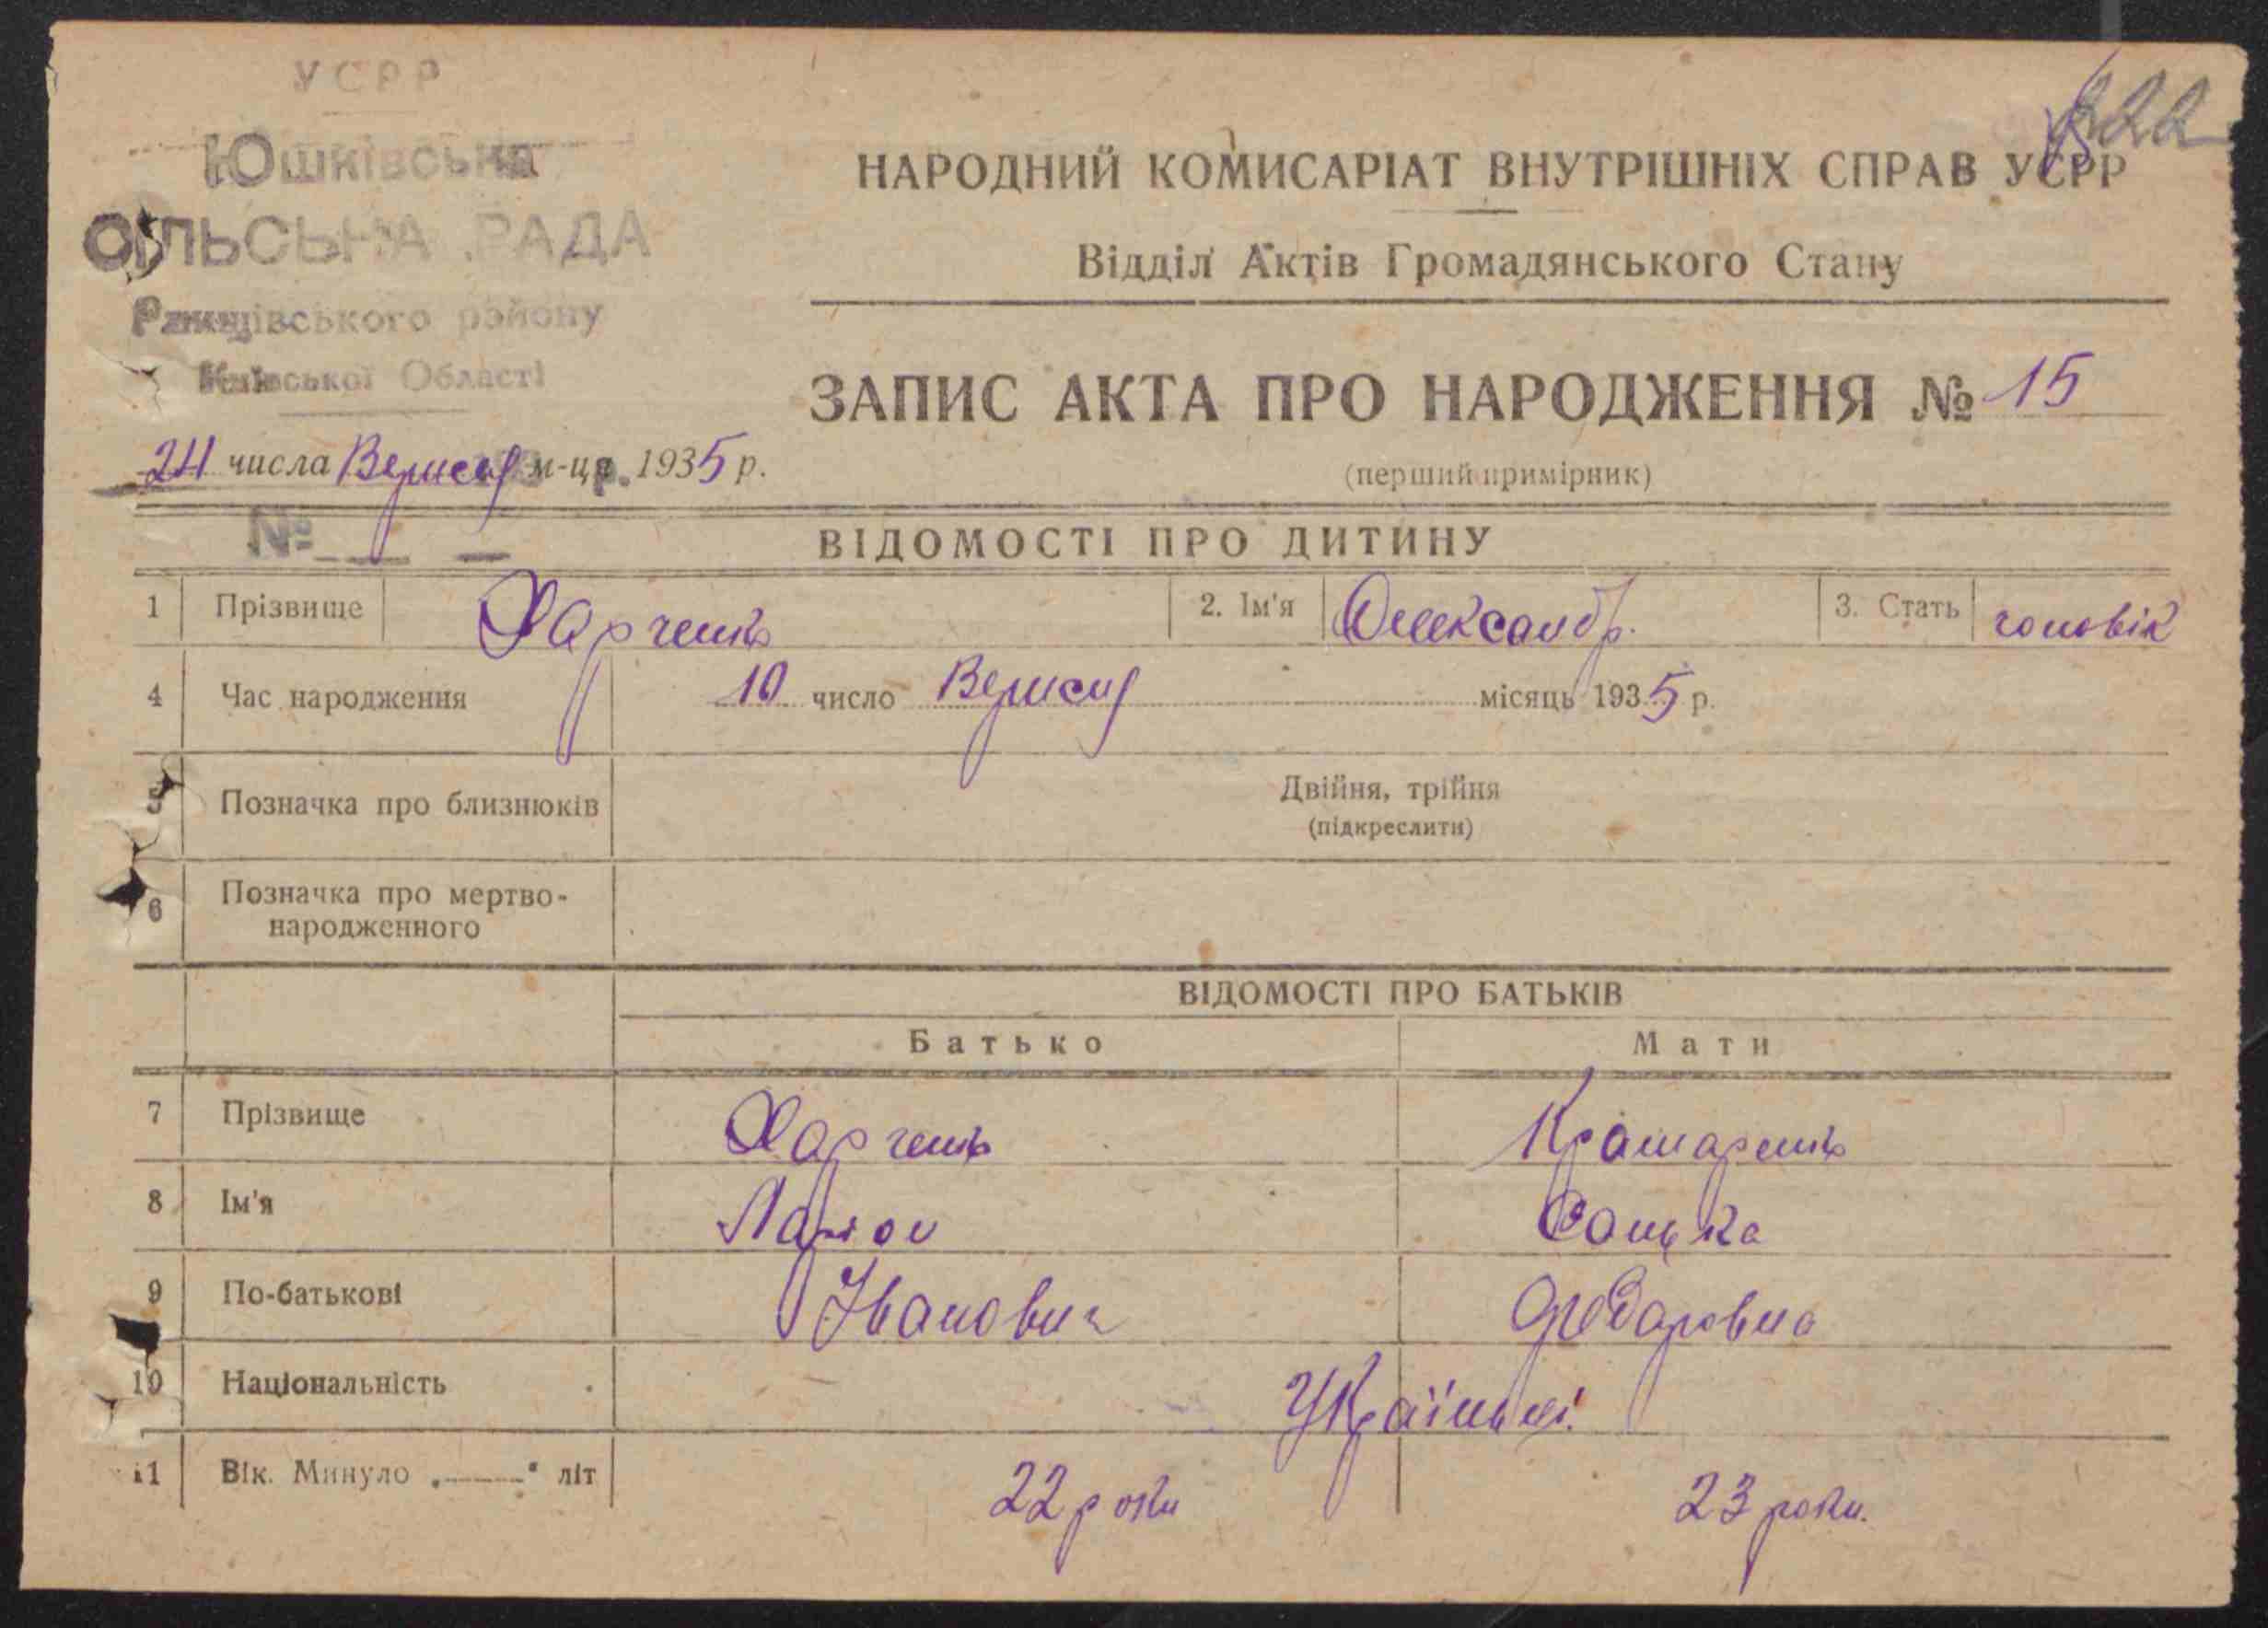 УСРР
Юшківська
СІЛЬСЬКА РАДА
Ржищівського району
Київської Області
24 числа Вересня м-ця 1935 р.
№
822
НАРОДНИЙ КОМИСАРІАТ ВНУТРІШНІХ СПРАВ УСРР
Відділ Актів Громадянського Стану
ЗАПИС АКТА ПРО НАРОДЖЕННЯ № 15
(перший примірник)
ВІДОМОСТІ ПРО ДИТИНУ
1 Прізвище Харченко 2. Ім'я Олександр. 3. Стать чоловік
4 Час народження 10 число Вересня місяць 1935 р.
5 Позначка про близнюків Двійня, трійня
(підкреслити)
6 Позначка про мертво-
народженного
ВІДОМОСТІ ПРО БАТЬКІВ
Батько Мати
7 Прізвище Харченко Крамаренко
8 Ім'я Ларіон Санька
9 По-батькові Іванович Федаровна
10 Національність Українці.
11 Вік. Минуло „——" літ 22 роки 23 роки.